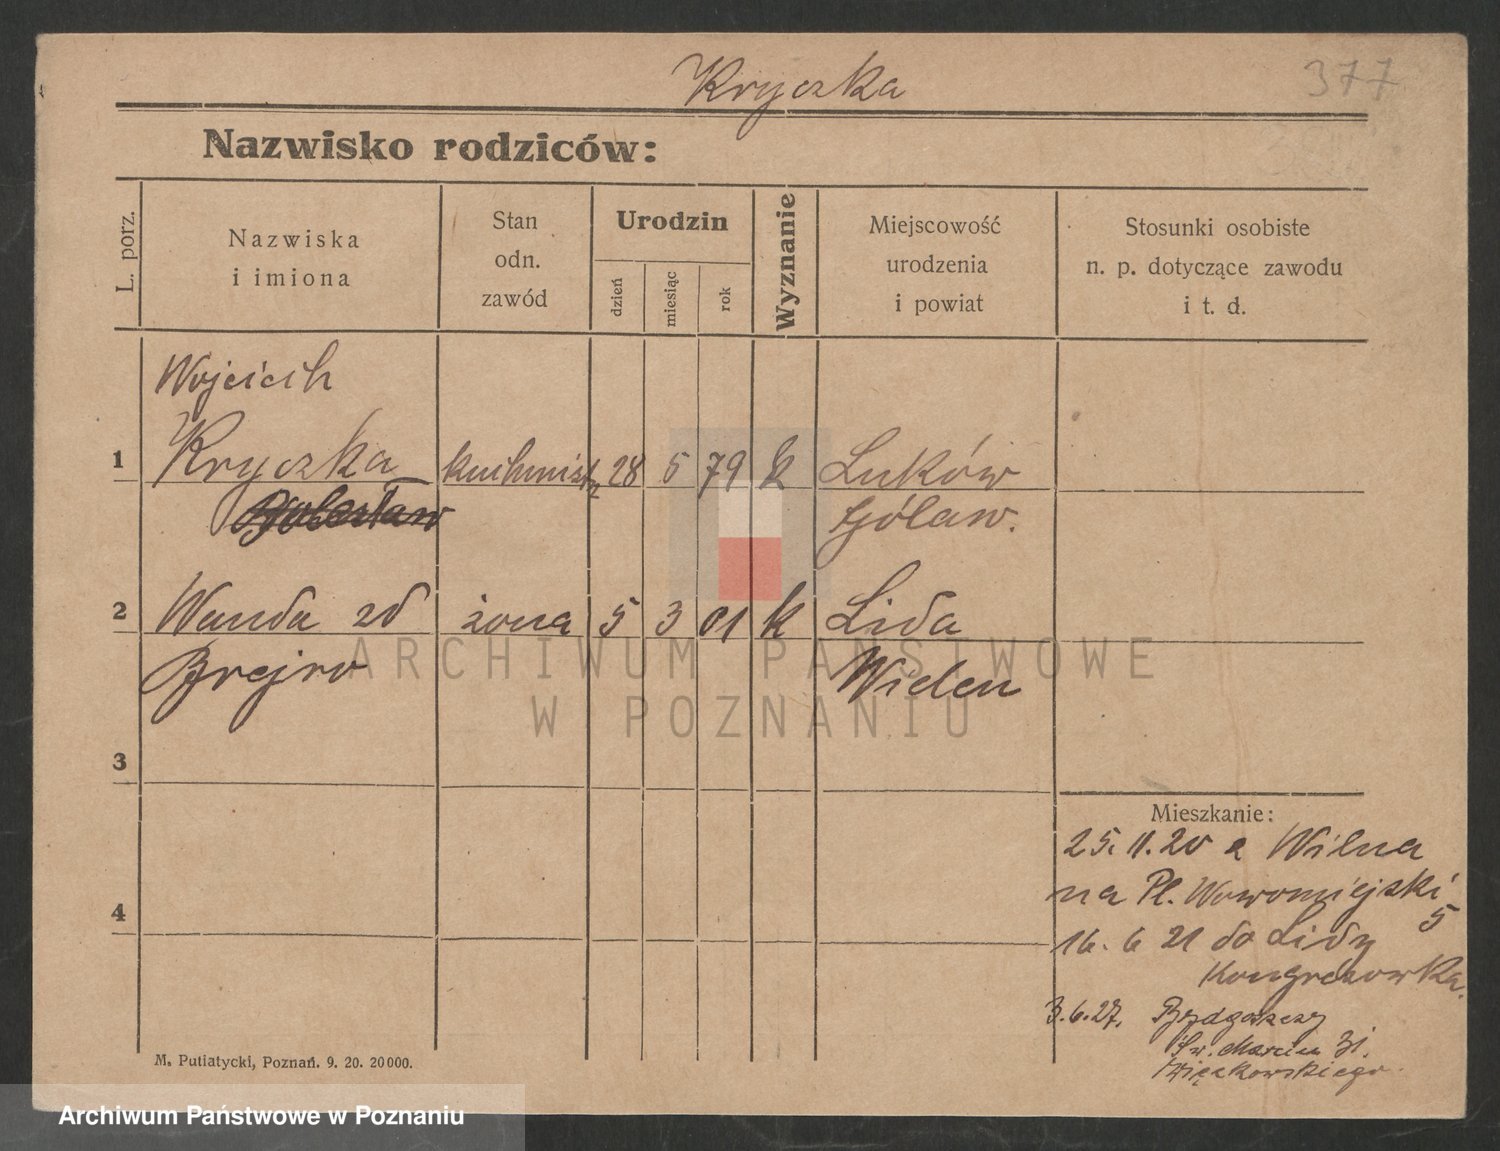 Kryczka
377
Nazwisko rodziców:
L. porz.
Nazwiska
i imiona
Stan
odn.
zawód
Urodzin
dzień
miesiąc
rok
Wyznanie
Miejscowość
urodzenia
i powiat
Stosunki osobiste
n. p. dotyczące zawodu
i t. d.
Wojcich
1 Kryczka kuchmistrz 28 5 79 k Łuków
Bolesław
2 Wanda zd żona 5 3 01 k Lida
3
4
Mieszkanie:
25. 11. 20 z Wilna
na Pl. Nowomiejski
5
16. 6 21 do Lidy
Kongresowka.
3. 6. 27. Bydgoszczy
Św. Marcin 31.
M. Putiatycki, Poznań. 9. 20. 20000.
ARCHIWUM PAŃSTWOWE
W POZNANIU
Archiwum Państwowe w Poznaniu